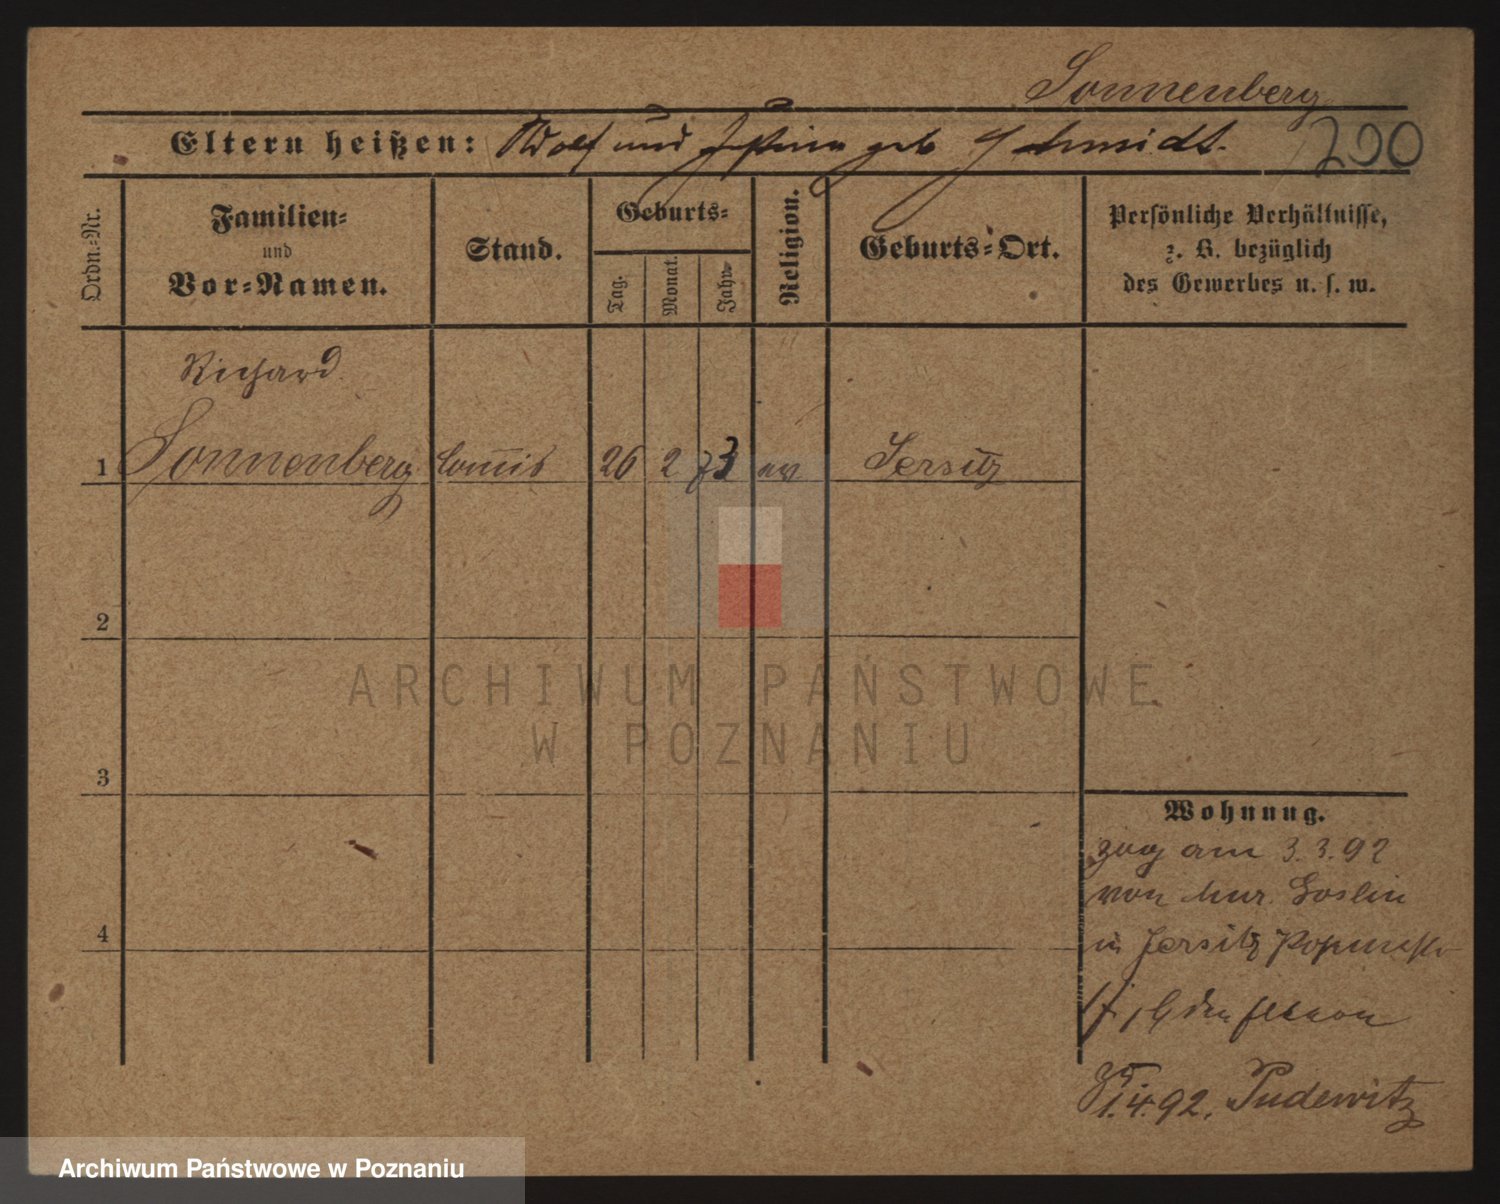 Sonnenberg
Eltern heißen: Adolf und Justine geb Schmidt.
200
Ordn.-Nr.
Familien-
und
Vor-Namen.
Stand.
Geburts-
Tag.
Monat.
Jahr.
Religion.
Geburts-Ort.
Persönliche Verhältnisse,
z. B. bezüglich
des Gewerbes u. s. w.
Richard
1 Sonnenberg Commis 26 2 73 ev Jersitz
2
3
4
ARCHIWUM PAŃSTWOWE
W POZNANIU
Wohnung.
zug am 3.3.92
von Mur. Goslin
in Jersitz
1.4.92. Pudewitz
Archiwum Państwowe w Poznaniu